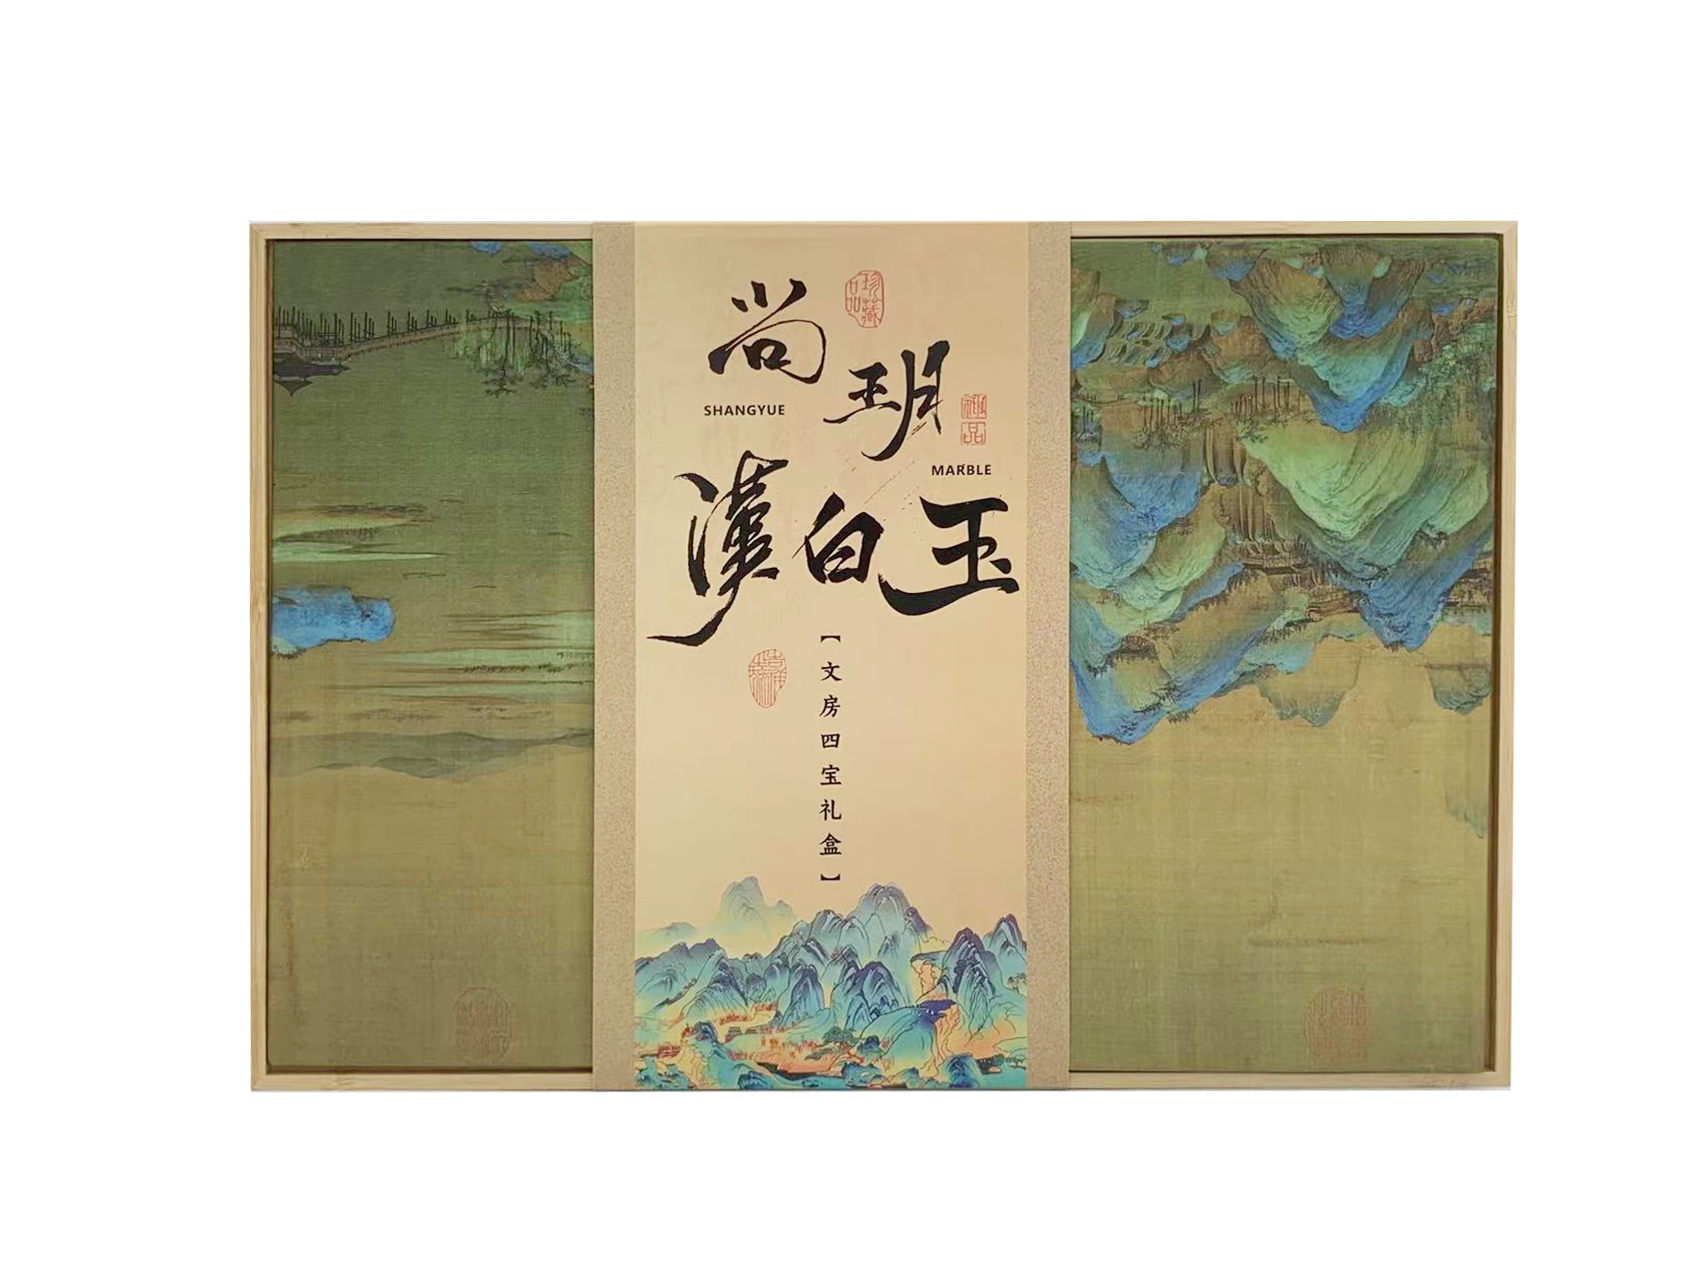 尚玥
SHANGYUE
珍藏
品
MARBLE
漢白玉
【文房四宝礼盒】